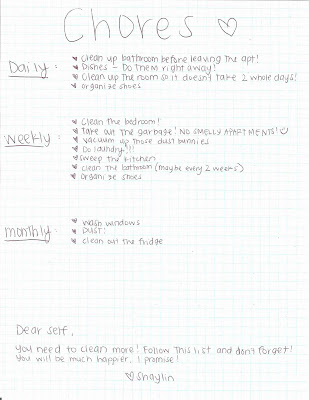 Chores ♡
Daily:
Clean up bathroom before leaving the apt!
Dishes - Do them right away!
Clean up the room so it doesn't take 2 whole days!
organize shoes
Weekly:
Clean the bedroom!
Take out the garbage! NO SMELLY APARTMENTS!
vacuum up those dust bunnies
Do laundry!!!
sweep the kitchen
clean the bathroom (maybe every 2 weeks)
organize shoes
monthly:
wash windows
DUST!
clean out the fridge
Dear self,
You need to clean more! Follow this list and don't forget!
You will be much happier, I promise!
♡ Shaylin